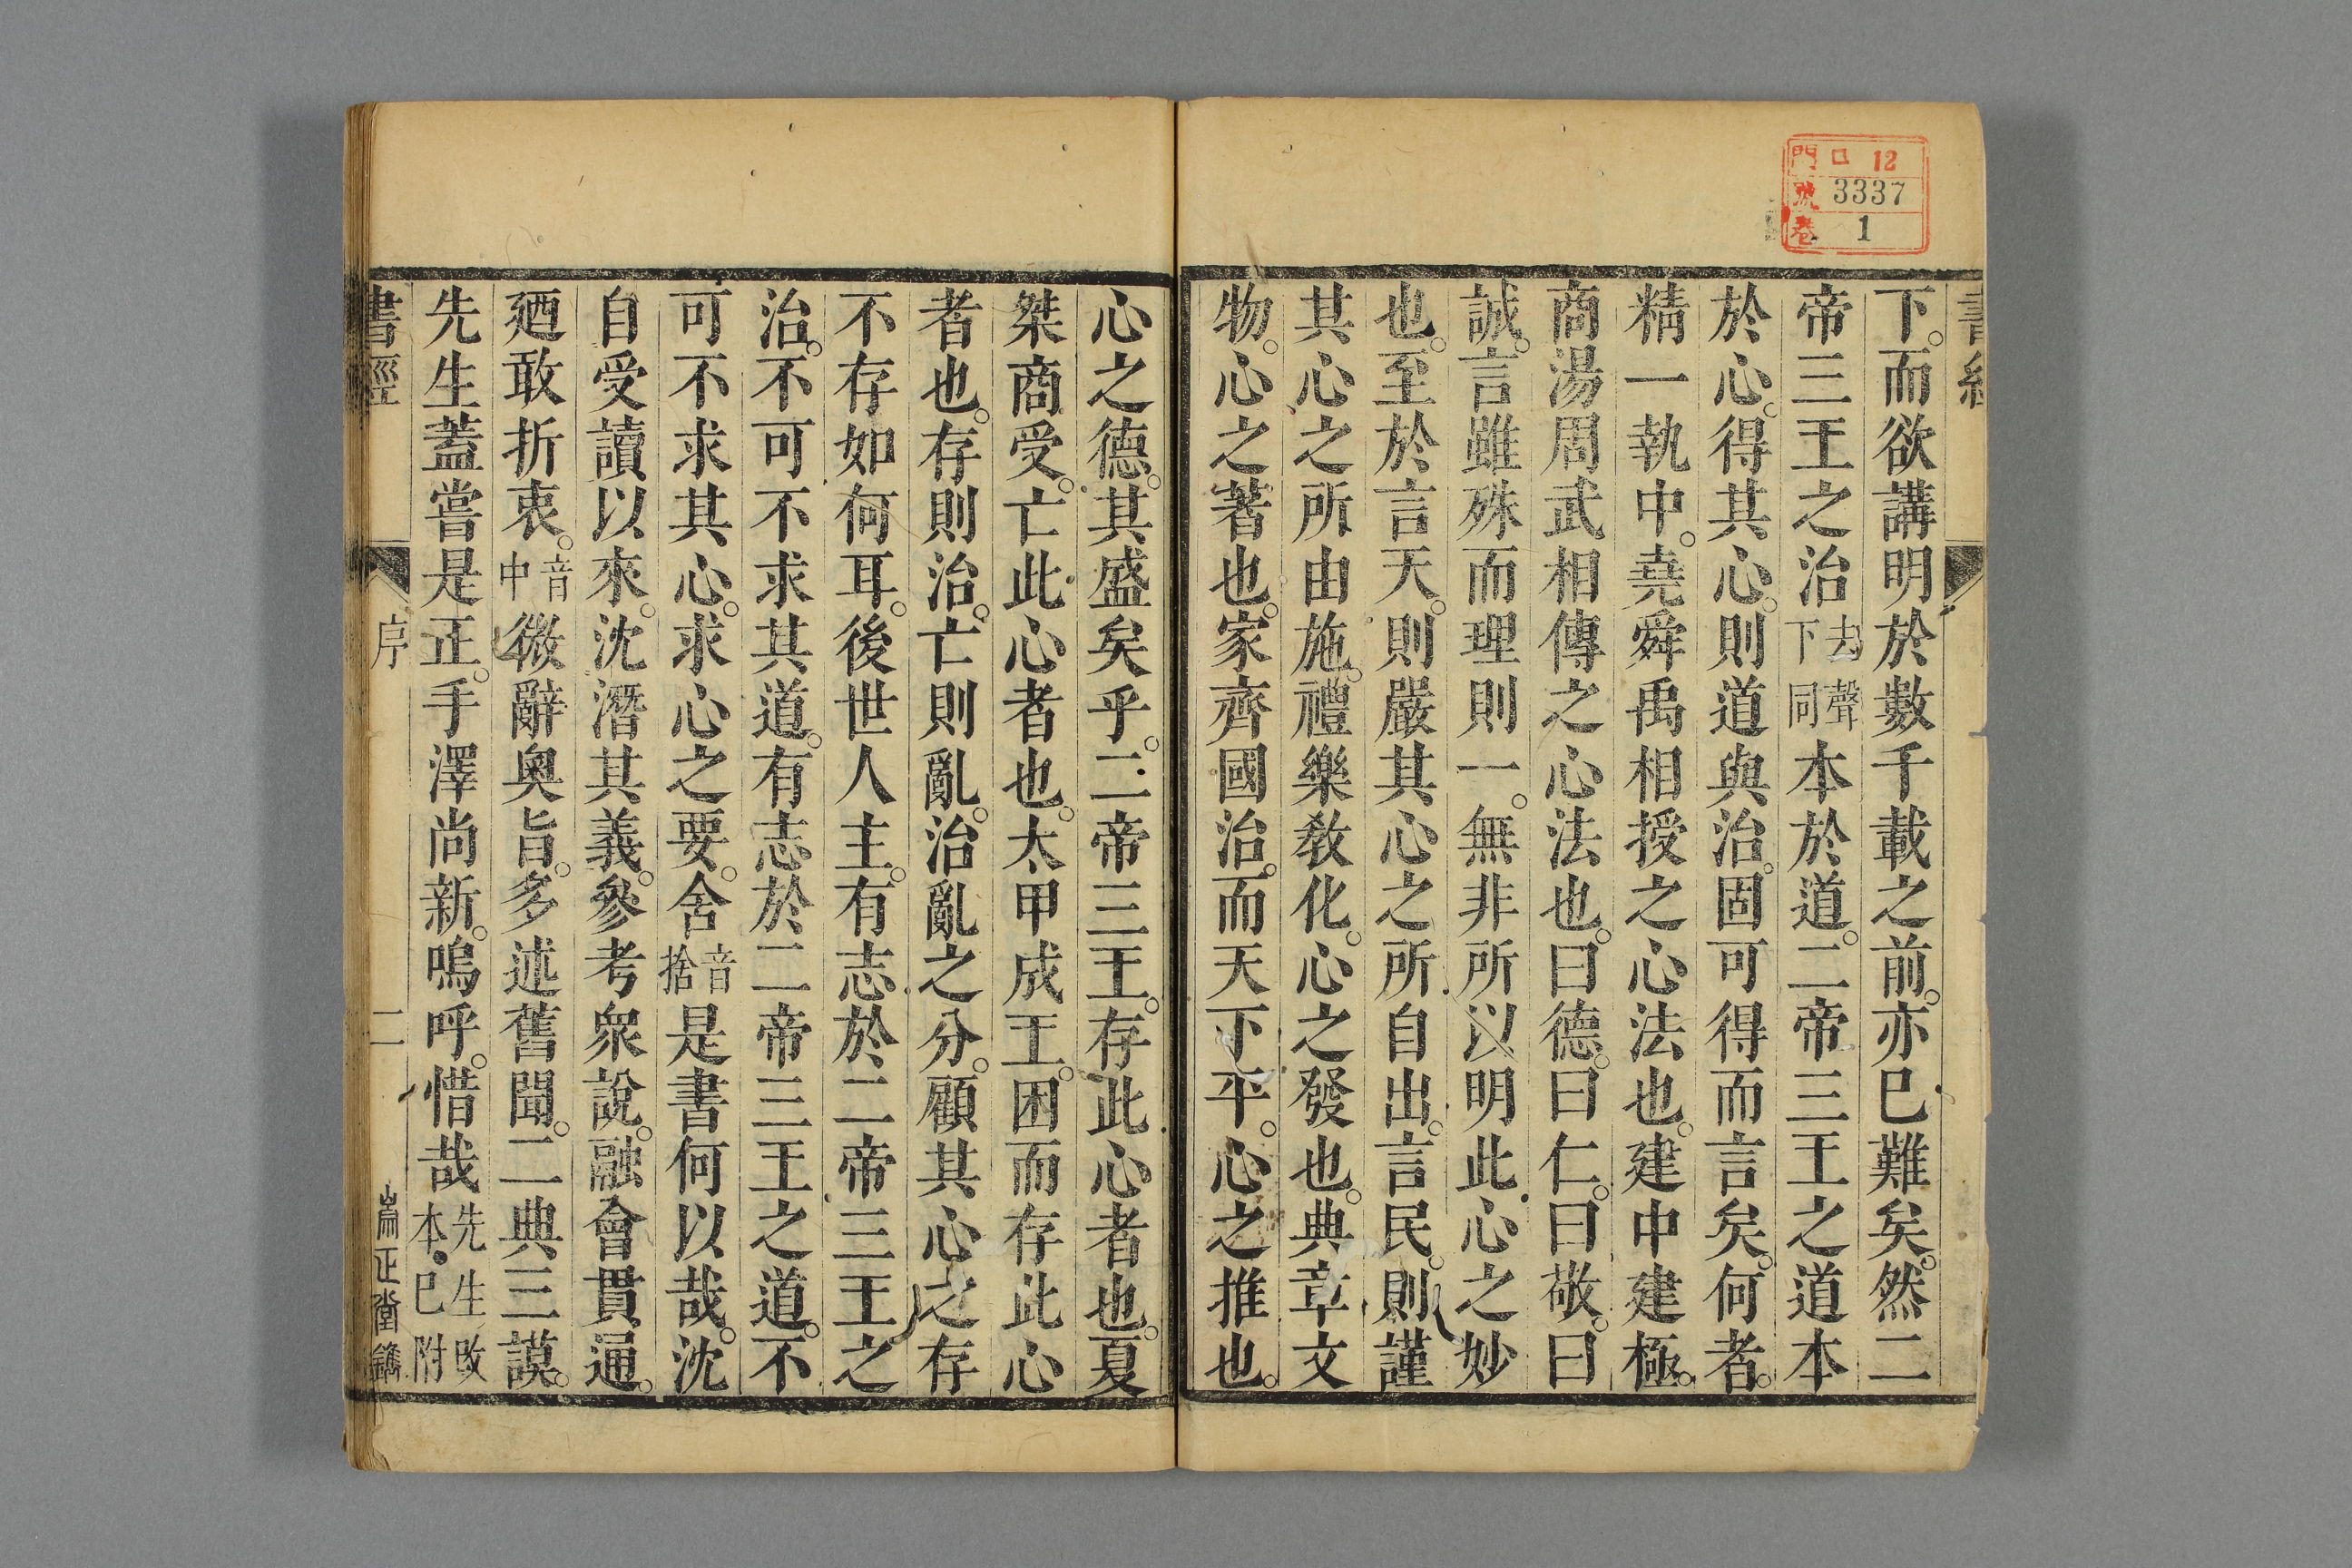 門 口 12
號 3337
卷 1
書經
下。而欲講明於數千載之前。亦已難矣。然二
帝三王之治去聲下同本於道。二帝三王之道本
於心。得其心。則道與治。固可得而言矣。何者。
精一執中。堯舜禹相授之心法也。建中建極。
商湯周武相傳之心法也。曰德。曰仁。曰敬。曰
誠。言雖殊而理則一。無非所以明此心之妙
也。至於言天。則嚴其心之所自出。言民。則謹
其心之所由施。禮樂敎化。心之發也。典章文
物。心之著也。家齊國治。而天下平。心之推也。
心之德。其盛矣乎。二帝三王。存此心者也。夏
桀商受。亡此心者也。太甲成王。困而存此心
者也。存則治。亡則亂。治亂之分。顧其心之存
不存如何耳。後世人主。有志於二帝三王之
治。不可不求其道。有志於二帝三王之道。不
可不求其心。求心之要。舍音捨是書何以哉。沈
自受讀以來。沈潛其義。參考衆說。融會貫通。
廼敢折衷。音中微辭奧旨。多述舊聞。二典三謨。
先生蓋嘗是正。手澤尚新。嗚呼。惜哉先生改本已附
書經
序
二
崇正堂鐫